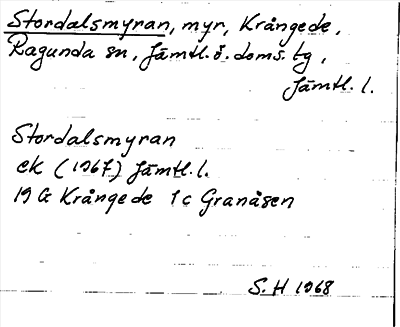 Stordalsmyran, myr, Krångede,
Ragunda sn, Jämtl. ö. doms. tg,
Jämtl. l.
Stordalsmyran
ek (1967) Jämtl. l.
19 G Krångede 1 c Granåsen
S. H 1968